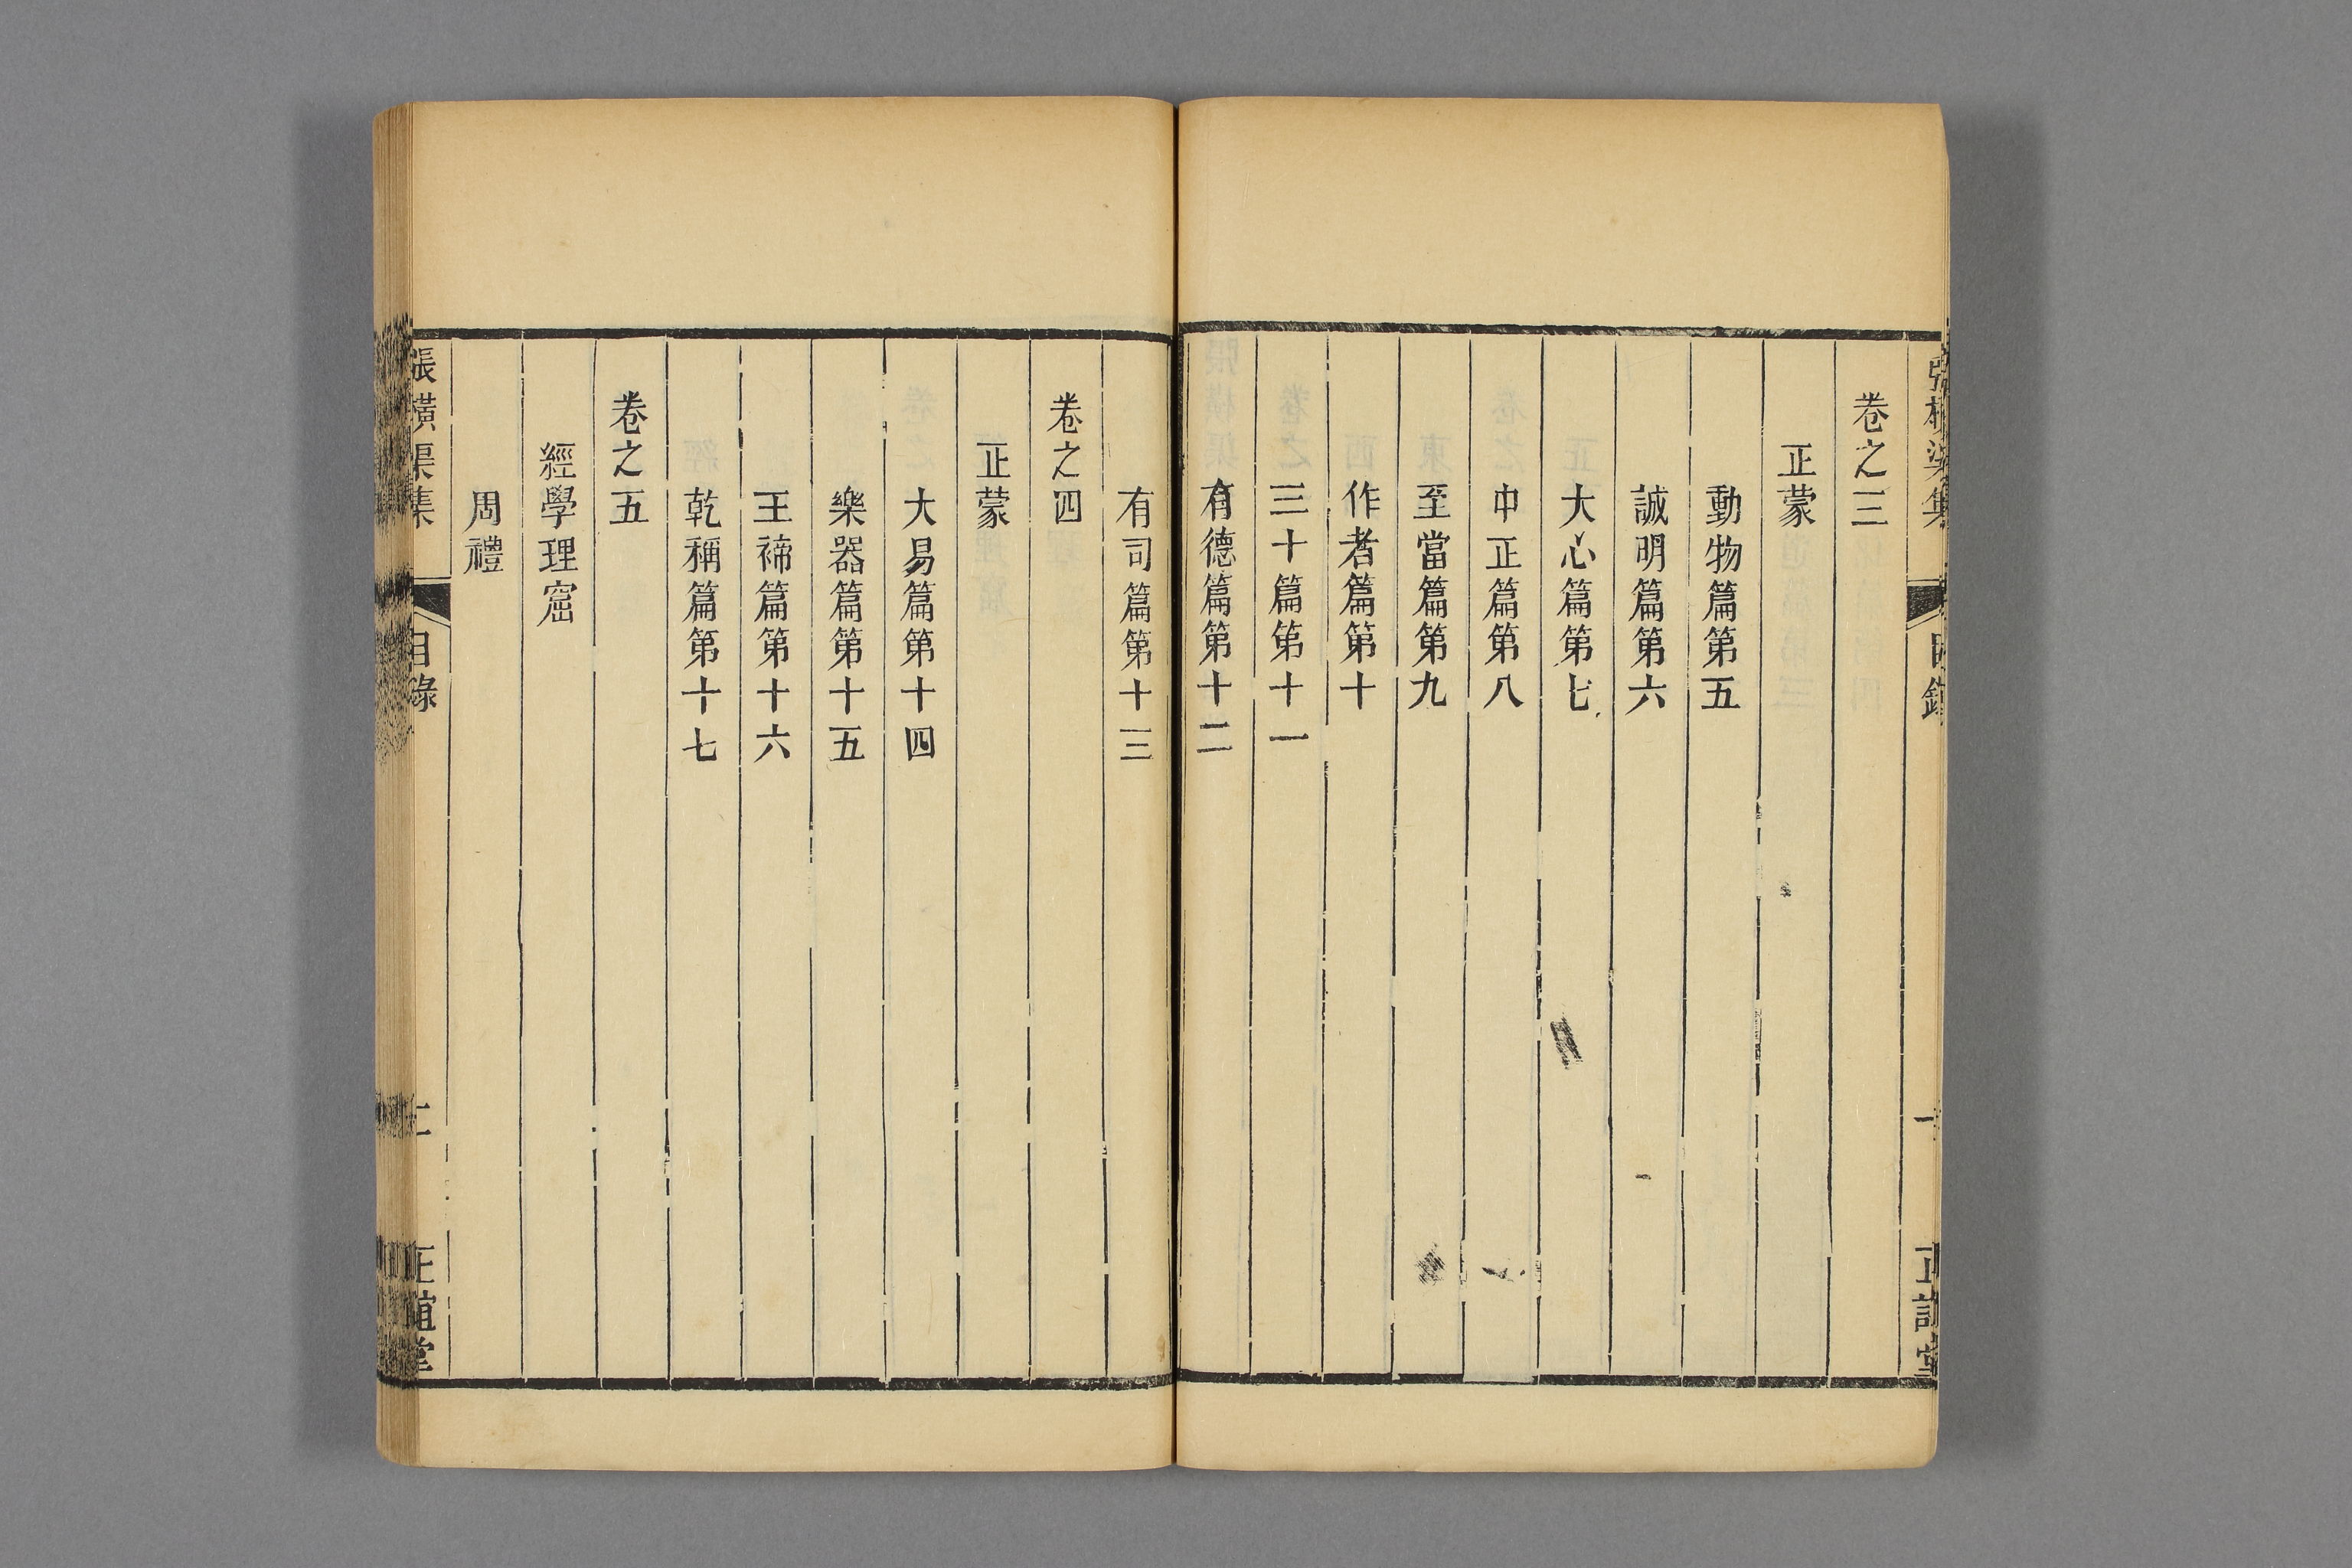 卷之三
正蒙
動物篇第五
誠明篇第六
大心篇第七
中正篇第八
至當篇第九
作者篇第十
三十篇第十一
有德篇第十二
有司篇第十三
卷之四
正蒙
大易篇第十四
樂器篇第十五
王禘篇第十六
乾稱篇第十七
卷之五
經學理窟
周禮
張橫渠集
目錄
二
正誼堂